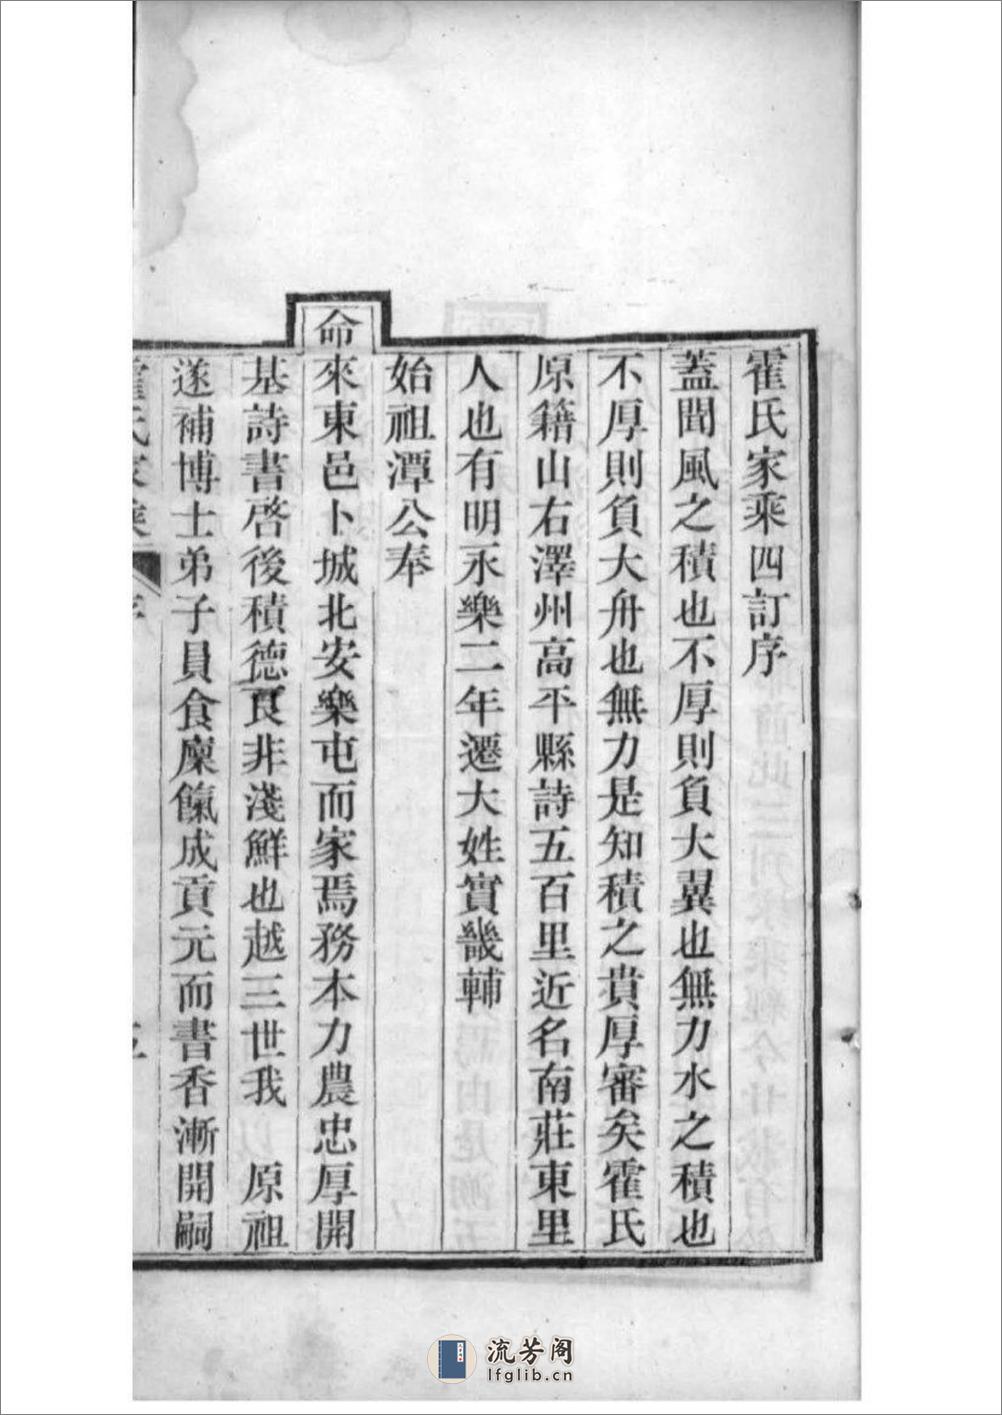 霍氏家乘四訂序
蓋聞風之積也不厚則負大翼也無力水之積也
不厚則負大舟也無力是知積之貴厚審矣霍氏
原籍山右澤州高平縣詩五百里近名南莊東里
人也有明永樂二年遷大姓實畿輔
始祖潭公奉
命來東邑卜城北安樂屯而家焉務本力農忠厚開
基詩書啓後積德良非淺鮮也越三世我 原祖
遂補博士弟子員食廩餼成貢元而書香漸開嗣
流芳阁
lfglib.cn